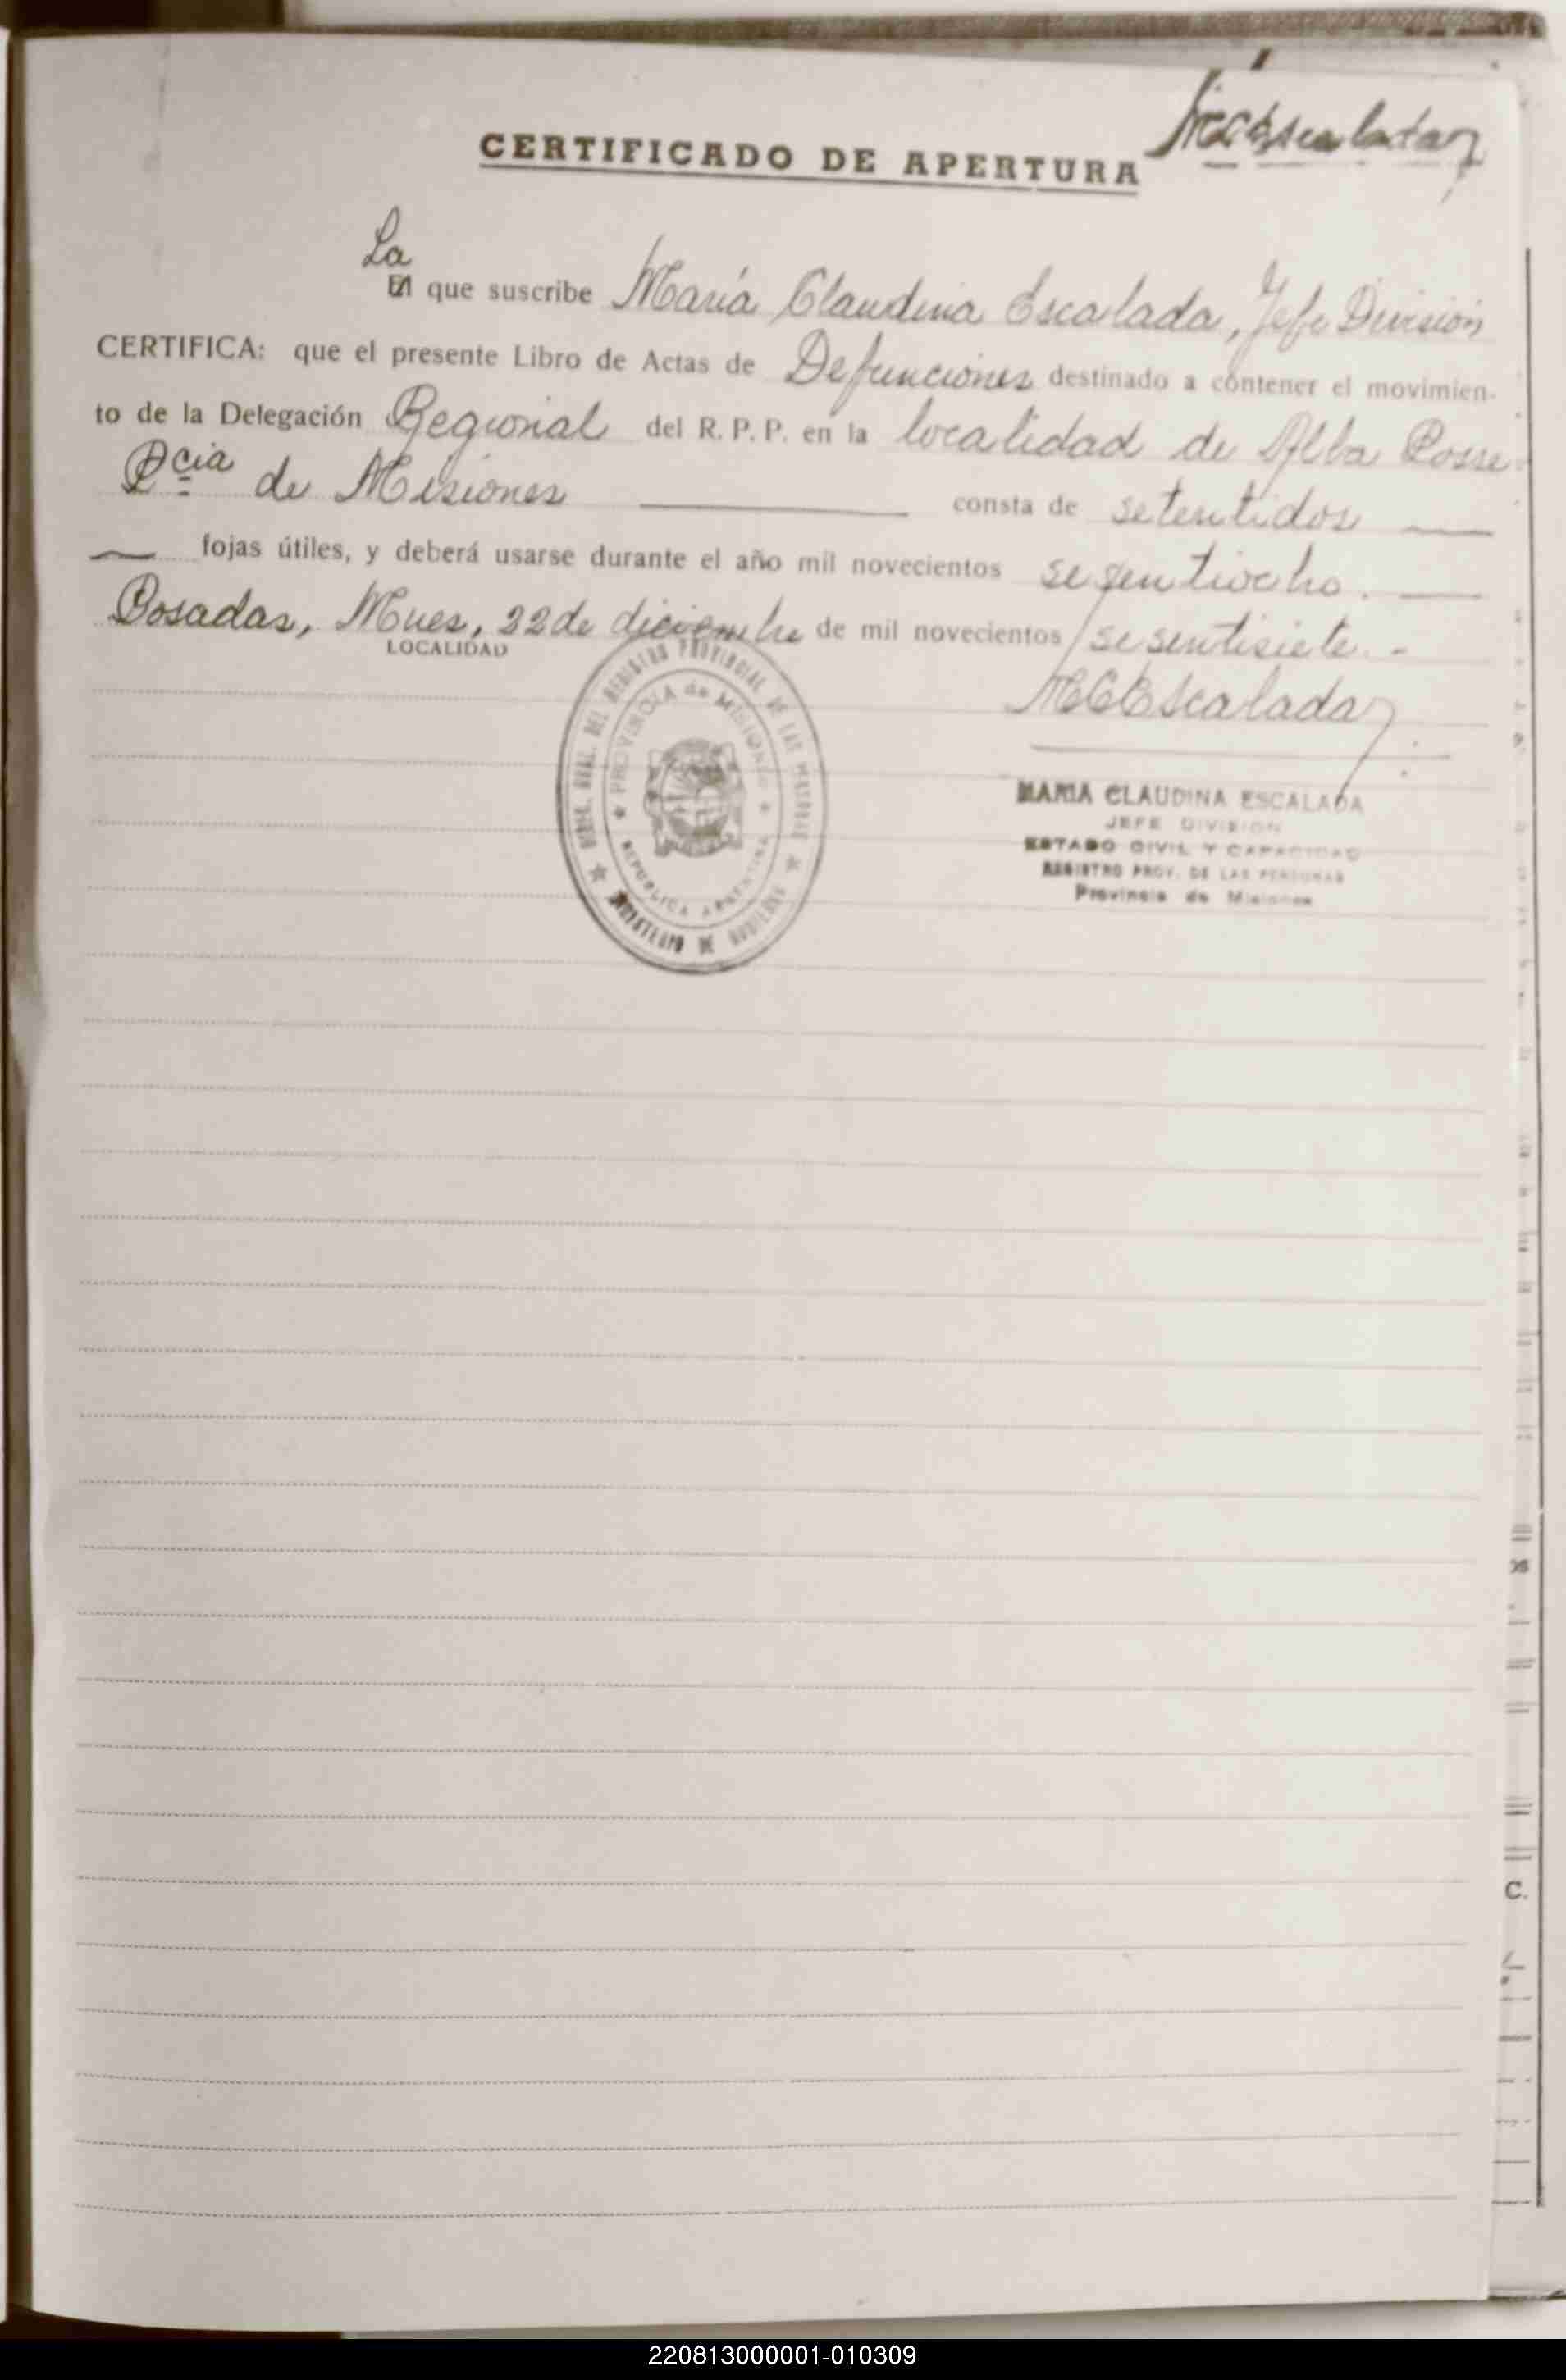 MCEscalada
CERTIFICADO DE APERTURA
La
El que suscribe María Claudina Escalada, Jefe División
CERTIFICA: que el presente Libro de Actas de Defunciones destinado a contener el movimien-
to de la Delegación Regional del R. P. P. en la localidad de Alba Posse
Pcia de Misiones consta de setentidos
fojas útiles, y deberá usarse durante el año mil novecientos sesentiocho.
Posadas, Mnes, 22 de diciembre de mil novecientos sesentisiete. -
LOCALIDAD
MCEscalada
DIREC. GRAL. DEL REGISTRO PROVINCIAL DE LAS PERSONAS
PROVINCIA de MISIONES
REPUBLICA ARGENTINA
MINISTERIO DE GOBIERNO
MARIA CLAUDINA ESCALADA
JEFE DIVISION
ESTADO CIVIL Y CAPACIDAD
REGISTRO PROV. DE LAS PERSONAS
Provincia de Misiones
C.
220813000001-010309